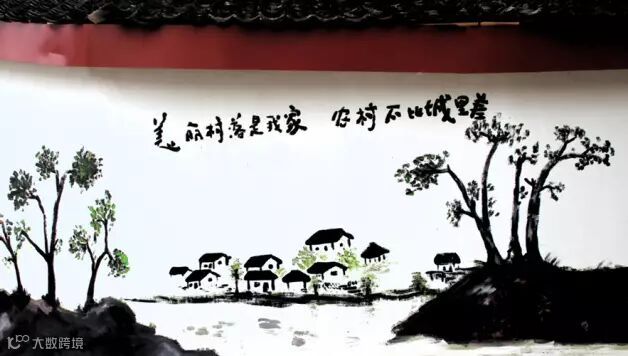 美丽村落是我家 农村不比城里差
大数跨境